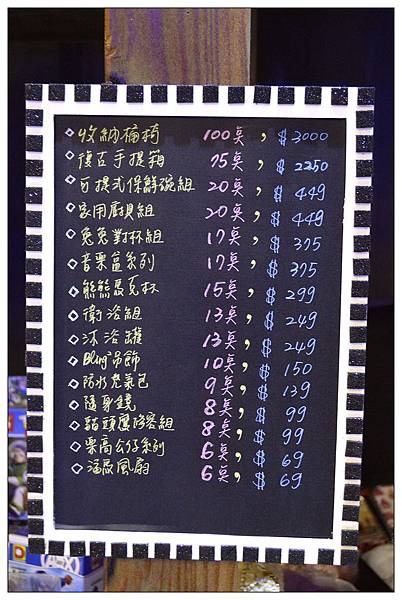 ◇收納桶椅 100莫, $3000
◇復古手提箱 75莫, $2250
◇可提式保鮮碗組 20莫, $449
◇家用廚具組 20莫, $449
◇兔兔對杯組 17莫, $375
◇音樂盒系列 17莫, $375
◇熊熊馬克杯 15莫, $299
◇衛浴組 13莫, $249
◇沐浴罐 13莫, $249
◇Bling吊飾 10莫, $150
◇防水 包 9莫, $139
◇隨身鏡 8莫, $99
◇貓頭鷹修容組 8莫, $99
◇樂高公仔系列 6莫, $69
◇ 風扇 6莫, $69